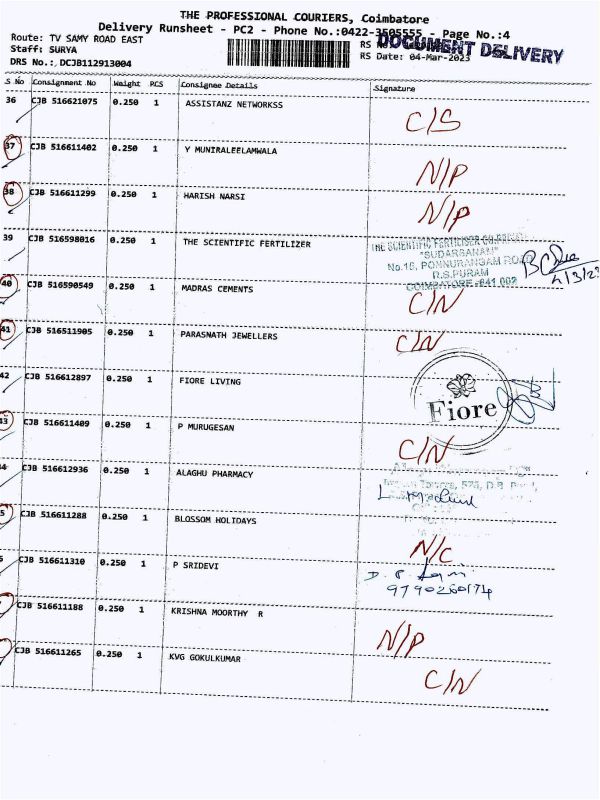 THE PROFESSIONAL COURIERS, Coimbatore
Delivery Runsheet - PC2 - Phone No.:0422-3505555 - Page No.:4
Route: TV SAMY ROAD EAST
Staff: SURYA
RS
DOCUMENT DELIVERY
DRS No.: DCJB112913004
RS Date: 04-Mar-2023
S No Consignment No Weight PCS Consignee Details Signature
36 CJB 516621075 0.250 1 ASSISTANZ NETWORKSS
C/S
37 CJB 516611402 0.250 1 Y MUNIRALEELAMWALA
N/P
38 CJB 516611299 0.250 1 HARISH NARSI
N/P
39 CJB 516598016 0.250 1 THE SCIENTIFIC FERTILIZER
THE SCIENTIFIC FERTILISER CO.
"SUDARSANAM"
No.16, PONNURANGAM ROAD
R.S.PURAM
COIMBATORE -641 002
4/3/23
40 CJB 516590549 0.250 1 MADRAS CEMENTS
C/N
41 CJB 516511905 0.250 1 PARASNATH JEWELLERS
C/N
42 CJB 516612897 0.250 1 FIORE LIVING
Fiore
43 CJB 516611409 0.250 1 P MURUGESAN
C/N
44 CJB 516612936 0.250 1 ALAGHU PHARMACY
5 CJB 516611288 0.250 1 BLOSSOM HOLIDAYS
N/C
CJB 516611310 0.250 1 P SRIDEVI
9790260174
CJB 516611188 0.250 1 KRISHNA MOORTHY R
N/P
CJB 516611265 0.250 1 KVG GOKULKUMAR
C/N